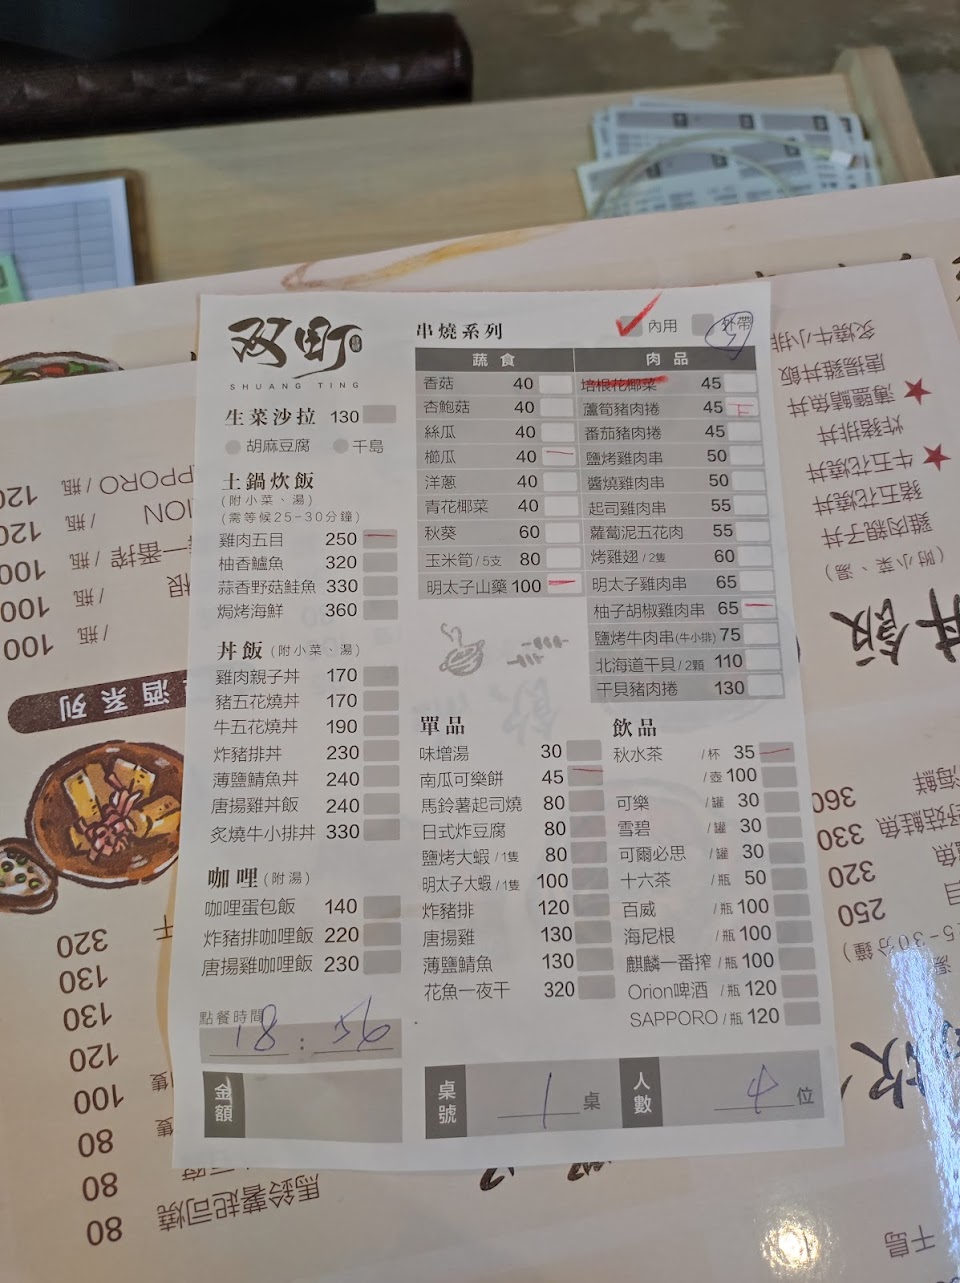 双町
SHUANG TING
生菜沙拉 130
胡麻豆腐 千島
土鍋炊飯
(附小菜、湯)
(需等候25-30分鐘)
雞肉五目 250
柚香鱸魚 320
蒜香野菇鮭魚 330
焗烤海鮮 360
丼飯 (附小菜、湯)
雞肉親子丼 170
豬五花燒丼 170
牛五花燒丼 190
炸豬排丼 230
薄鹽鯖魚丼 240
唐揚雞丼飯 240
炙燒牛小排丼 330
咖哩 (附湯)
咖哩蛋包飯 140
炸豬排咖哩飯 220
唐揚雞咖哩飯 230
點餐時間
18 : 56
金額
串燒系列
內用 外帶
蔬食
香菇 40
杏鮑菇 40
絲瓜 40
櫛瓜 40
洋蔥 40
青花椰菜 40
秋葵 60
玉米筍/5支 80
明太子山藥 100
肉品
培根花椰菜 45
蘆筍豬肉捲 45
番茄豬肉捲 45
鹽烤雞肉串 50
醬燒雞肉串 50
起司雞肉串 55
蘿蔔泥五花肉 55
烤雞翅/2隻 60
明太子雞肉串 65
柚子胡椒雞肉串 65
鹽烤牛肉串(牛小排) 75
北海道干貝/2顆 110
干貝豬肉捲 130
單品
味增湯 30
南瓜可樂餅 45
馬鈴薯起司燒 80
日式炸豆腐 80
鹽烤大蝦/1隻 80
明太子大蝦/1隻 100
炸豬排 120
唐揚雞 130
薄鹽鯖魚 130
花魚一夜干 320
飲品
秋水茶 /杯 35
/壺 100
可樂 /罐 30
雪碧 /罐 30
可爾必思 /罐 30
十六茶 /瓶 50
百威 /瓶 100
海尼根 /瓶 100
麒麟一番搾 /瓶 100
Orion啤酒 /瓶 120
SAPPORO /瓶 120
桌號 1 桌
人數 4 位
炙燒牛小排
唐揚雞丼飯
薄鹽鯖魚丼
炸豬排丼
牛五花燒丼
豬五花燒丼
雞肉親子丼
(附小菜、湯)
丼飯
PPORO /瓶 120
ION /瓶 120
一番搾 /瓶 100
根 /瓶 100
/瓶 100
酒系列
海鮮 360
野菇鮭魚 330
魚 320
目 250
5-30分鐘)
干 320
130
130
120
隻 100
隻 80
80
馬鈴薯起司燒 80
千島